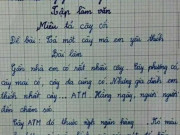 Tập làm văn
Miêu tả cây cối
Đề bài: Tả một cây mà em yêu thích
Bài làm
Gần nhà em có rất nhiều cây. Cây phượng có,
cây me có, cây đa cũng có. Nhưng gia đình em
thích nhất cây ATM. Hàng ngày, người người
đến chăm sóc.
Cây ATM đó thuộc ngân hàng